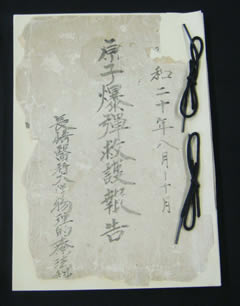 和二十年八月―十月
原子爆彈救護報告
長崎醫科大學物理的療法科